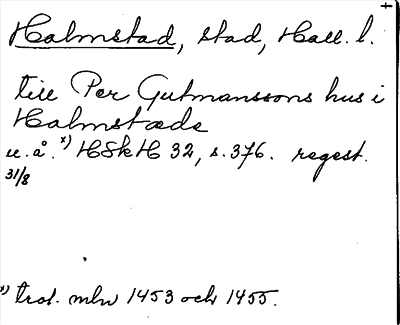 +
Halmstad, stad, Hall. l.
till Per Gutmanssons hus i
Halmstade
u. å. x) HSkH 32, s. 376. regest.
31/8
x) trol. mln 1453 och 1455.